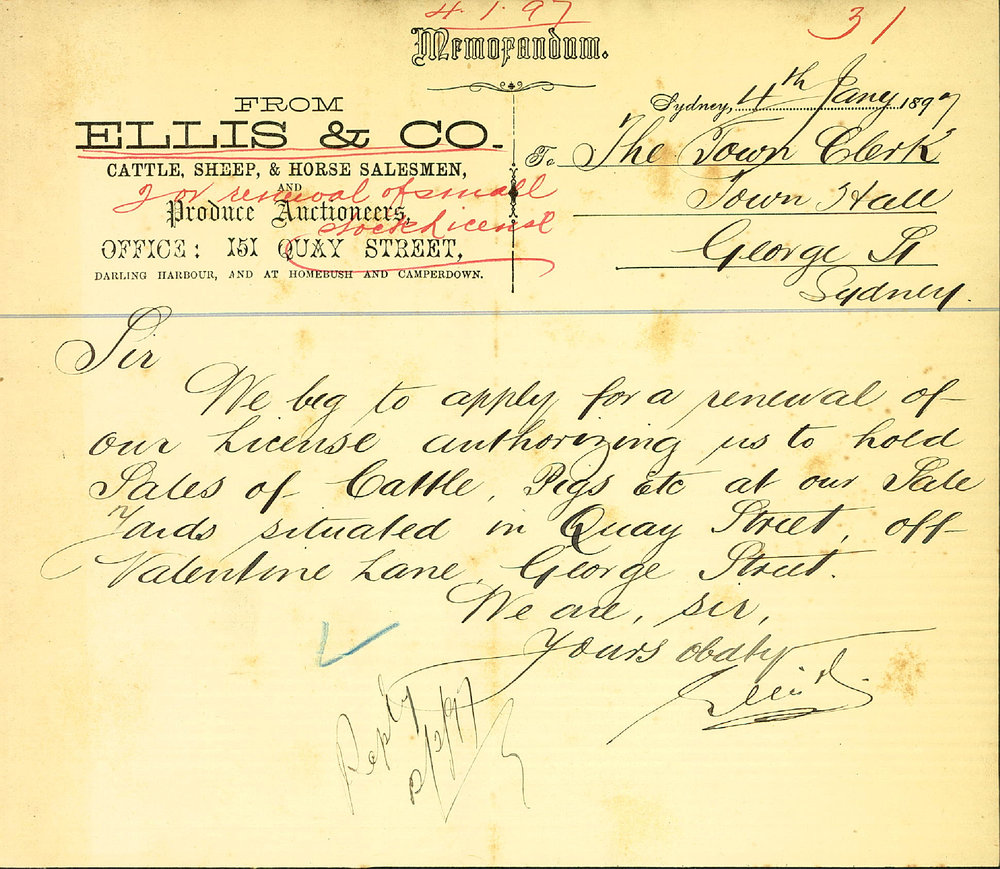 4.1.97
31
Memorandum.
FROM
ELLIS & CO.
CATTLE, SHEEP, & HORSE SALESMEN,
AND
Produce Auctioneers,
OFFICE: 151 QUAY STREET,
DARLING HARBOUR, AND AT HOMEBUSH AND CAMPERDOWN.
For renewal of small
stock License
Sydney, 4th Jany 1897
To The Town Clerk
Town Hall
George St
Sydney.
Sir
We beg to apply for a renewal of
our License authorizing us to hold
Sales of Cattle, Pigs Etc at our Sale
Yards situated in Quay Street, off
Valentine Lane, George Street.
We are, sir,
Yours obdtly
Ellis & Co
Reply